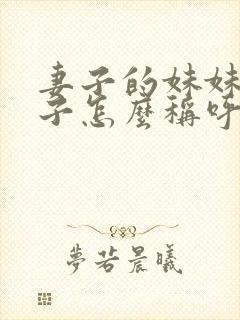 妻子的妹妹
子怎麼稱呼
夢若晨曦